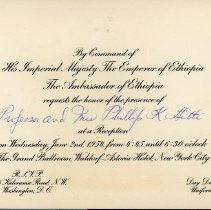 By Command of
His Imperial Majesty The Emperor of Ethiopia
The Ambassador of Ethiopia
requests the honor of the presence of
Professor and Mrs Phillip K. Hitti
at a Reception
on Wednesday, June 2nd, 1954, from 4:45 until 6:30 o'clock
The Grand Ballroom, Waldorf-Astoria Hotel, New York City
R.S.V.P.
Kalorama Road N.W.
Washington, D.C.
Day Dress
Uniform